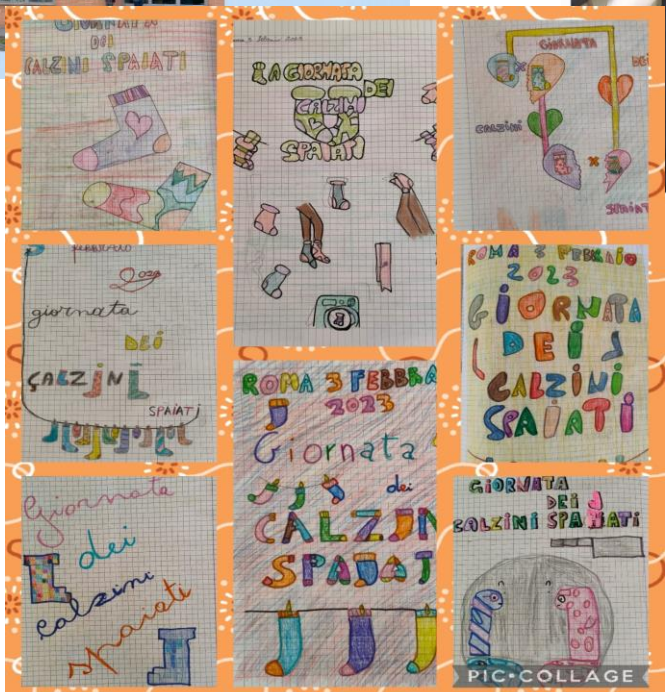 GIORNATA
DEI
CALZINI SPAIATI
LA GIORNATA
DEI
CALZINI
SPAIATI
GIORNATA
DEI
CALZINI
SPAIATI
FEBBRAIO
2023
giornata
DEI
CALZINI
SPAIATI
ROMA 3 FEBBRAIO
2023
GIORNATA
DEI
CALZINI
SPAIATI
ROMA 3 FEBBRA
2023
Giornata
dei
CALZIN
SPAIAT
Giornata
dei
calzini
spaiati
GIORNATA
DEI
CALZINI SPAIATI
PIC•COLLAGE